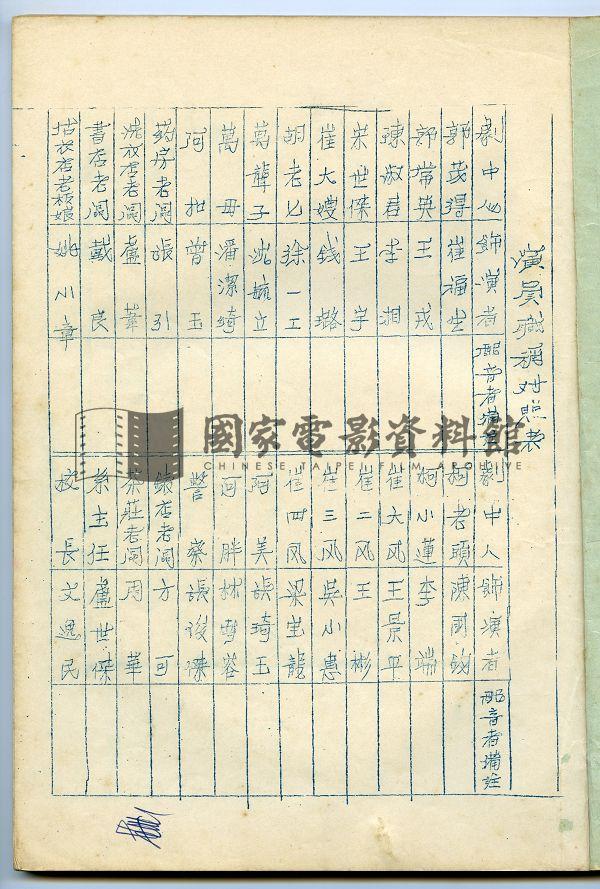 演員職稱对照表
劇中人 飾演者 配音者備註 劇中人 飾演者 配音者備註
郭茂得 崔福生 柯老頭 陳國鈞
郭常英 王戎 柯小蓮 李端
陳淑君 李湘 崔大风 王景平
宋世傑 王宇 崔二风 王彬
崔大嫂 钱璐 崔三风 吳小惠
胡老七 徐一工 崔四风 梁宝龍
萬聾子 沈毓立 阿美 張琦玉
萬母 潘潔綺 阿胖 林雪蓉
阿扣 曾玉 警察 張俊傑
药房老闆 張引 飯店老闆 方可
洗衣店老闆 盧華 茶莊老闆 周華
書店老闆 戴良 系主任 盧世傑
估衣店老板娘 姚小章 校長 文逸民
國家電影資料館
CHINESE TAIPEI FILM ARCHIVE